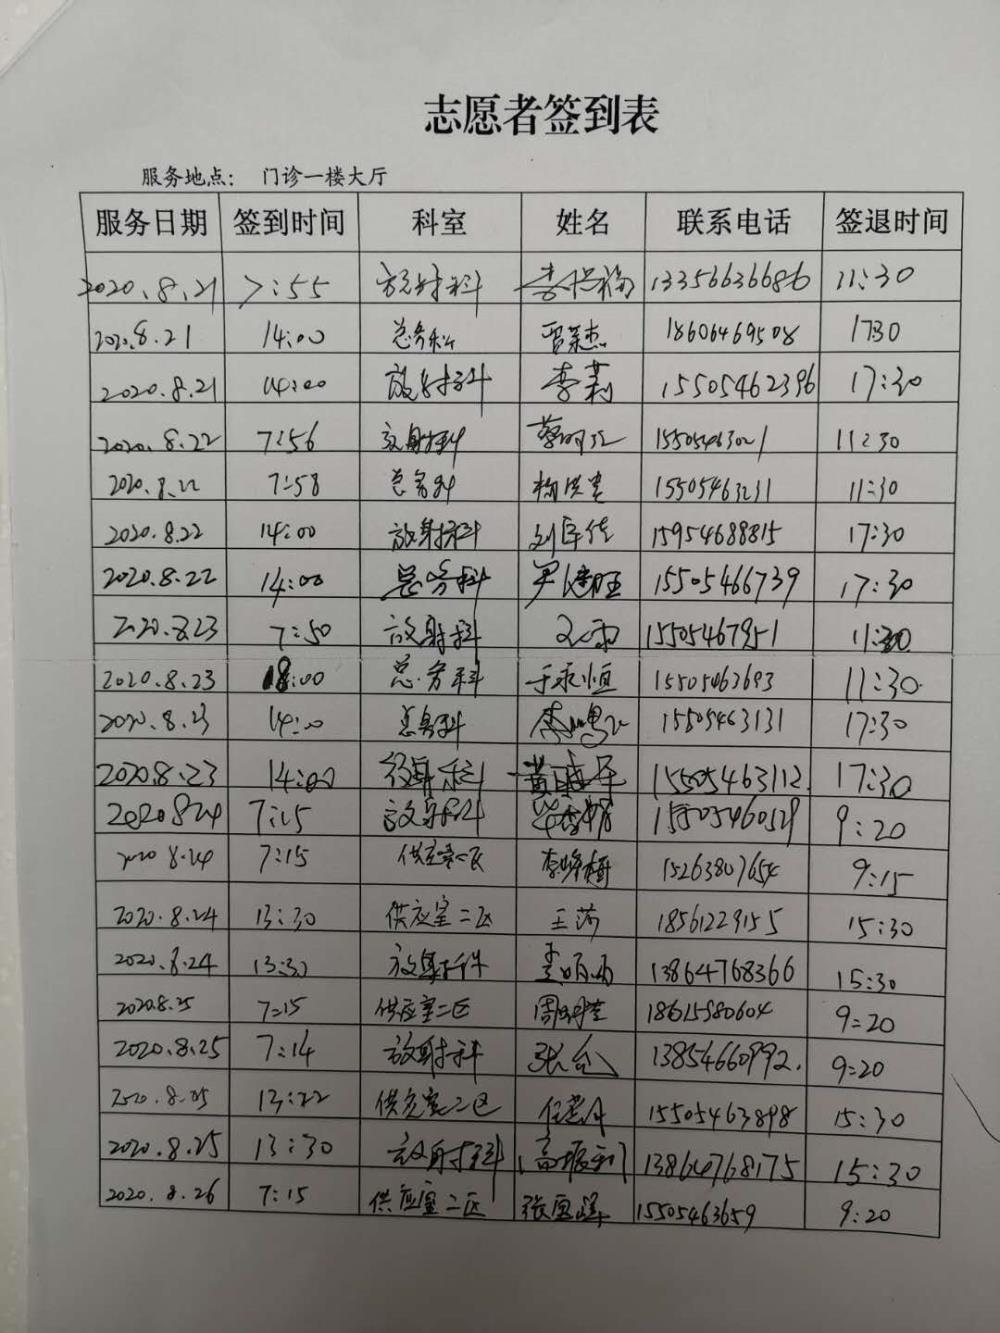 志愿者签到表
服务地点: 门诊一楼大厅
服务日期 签到时间 科室 姓名 联系电话 签退时间
2020.8.21 7:55 放射科 13356636686 11:30
2020.8.21 14:00 总务科 18606469508 1730
2020.8.21 14:00 放射科 李莉 15505462396 17:30
2020.8.22 7:56 放射科 11:30
2020.8.22 7:58 总务科 15505463231 11:30
2020.8.22 14:00 放射科 15954688815 17:30
2020.8.22 14:00 总务科 15505466739 17:30
2020.8.23 7:50 放射科 15505467951 11:30
2020.8.23 8:00 总务科 于永恒 11:30
2020.8.23 14:00 总务科 15505463131 17:30
2020.8.23 14:00 放射科 15505463112 17:30
2020824 7:15 放射科 9:20
2020 8.24 7:15 15263807654 9:15
2020.8.24 13:30 供应室二区 王 18561229155 15:30
2020.8.24 13:30 放射科 13864768366 15:30
2020.8.25 7:15 供应室二区 18615980604 9:20
2020.8.25 7:14 放射科 13854660992. 9:20
2020.8.25 13:22 供应室二区 15505463898 15:30
2020.8.25 13:30 放射科 高振利 13864768175 15:30
2020.8.26 7:15 供应室二区 15505463659 9:20